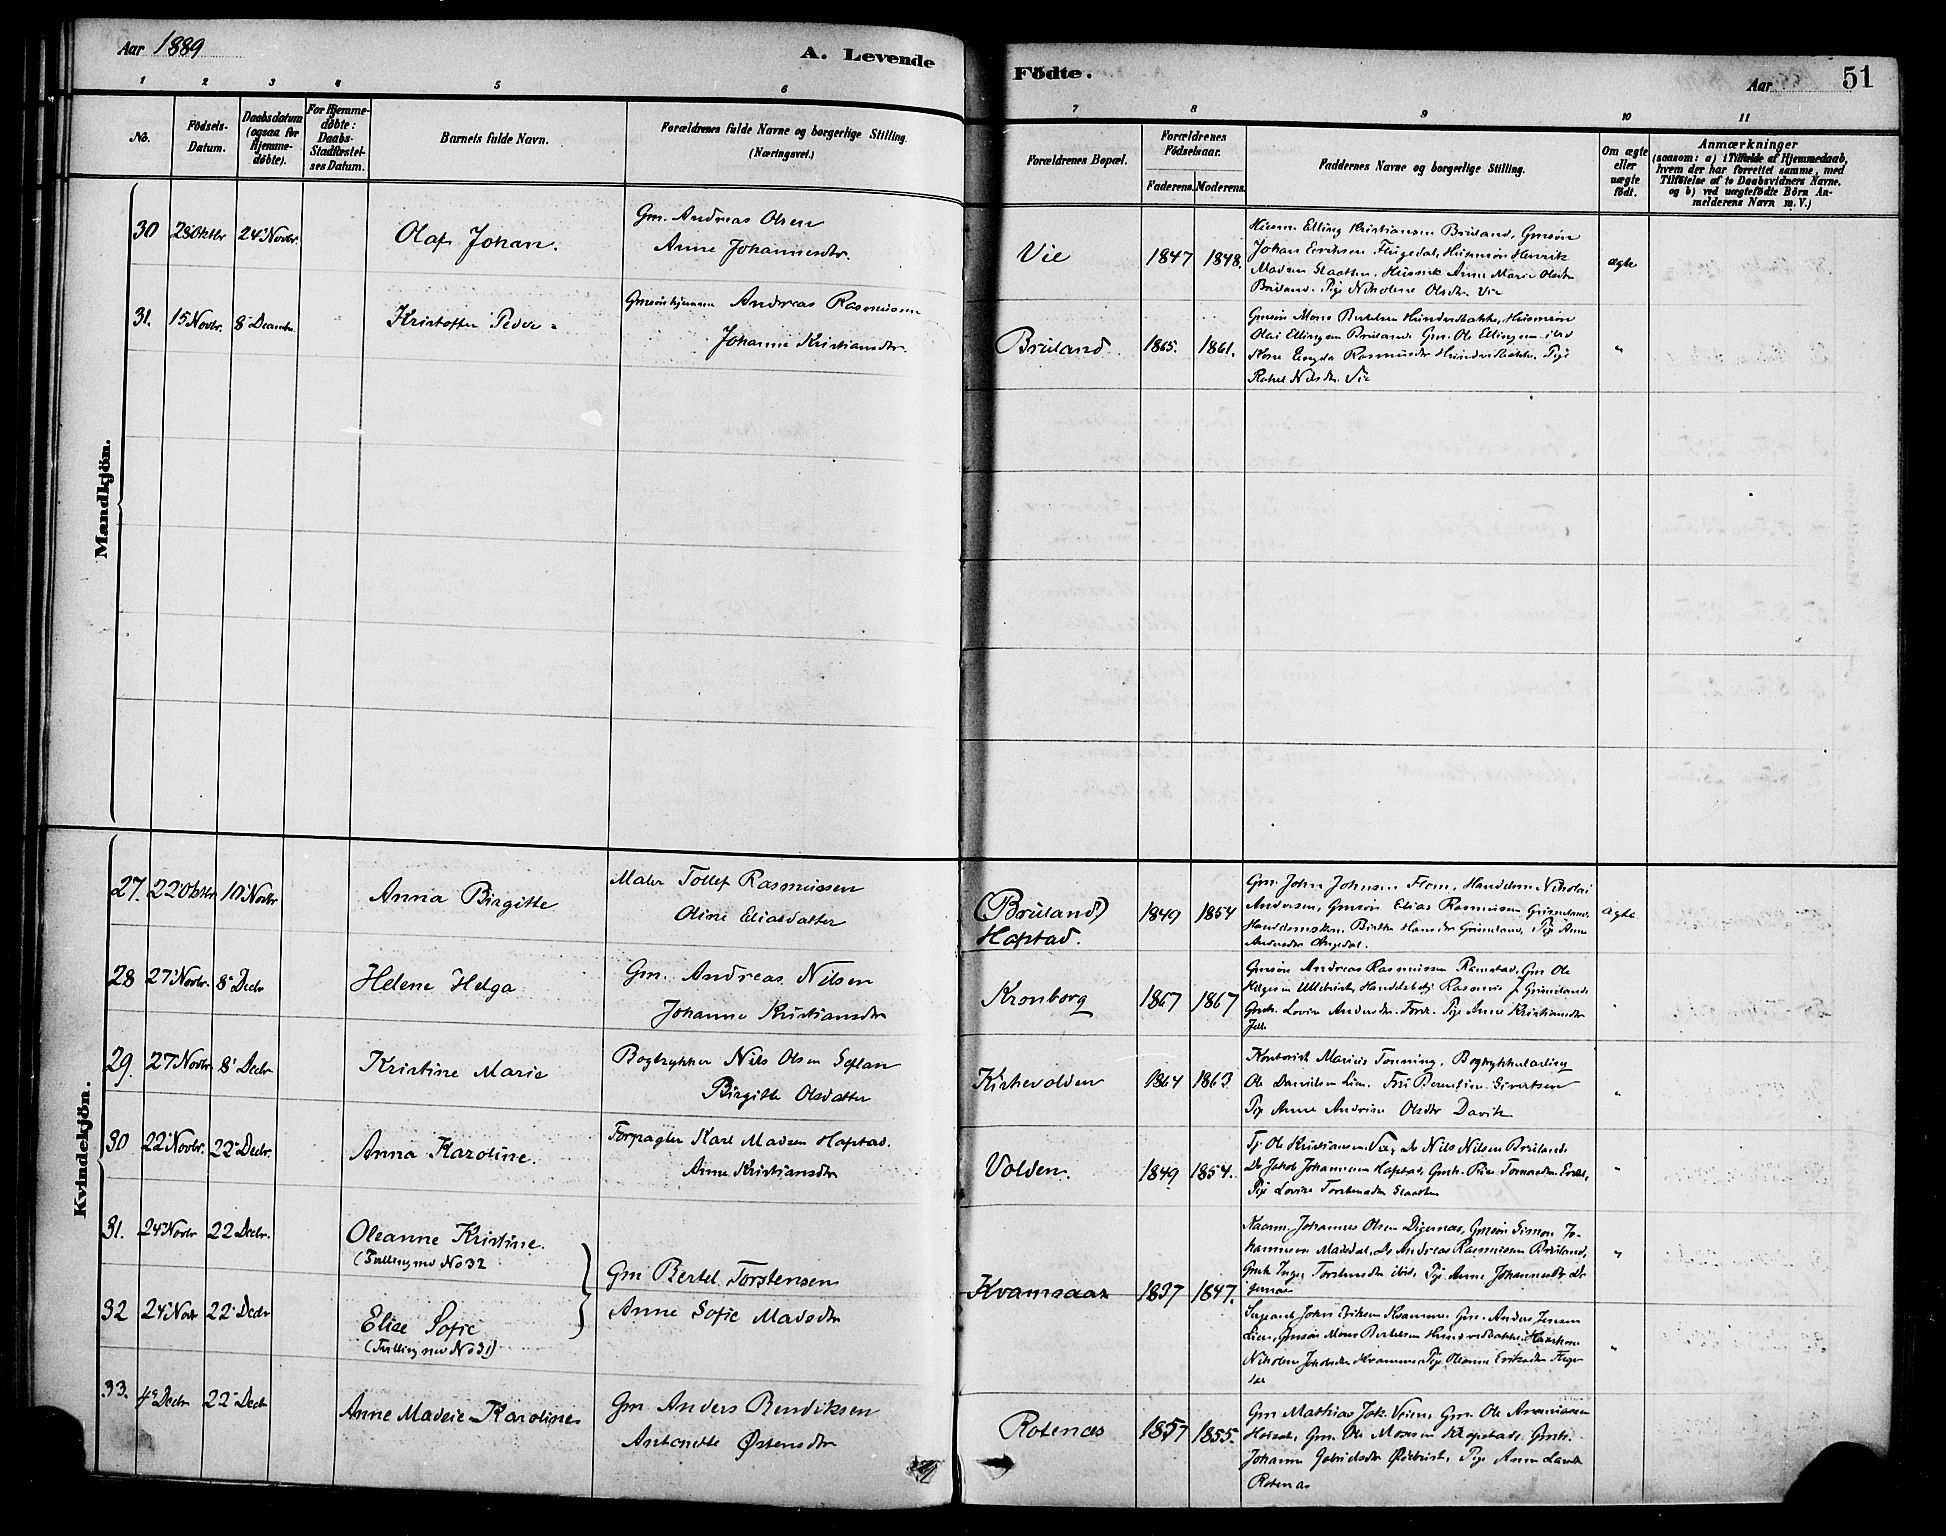 Aar 1889
A. Levende
Födte.
Aar
51
1 2 3 4 5 6 7 8 9 10 11
No.
Födsels-
Datum.
Daabsdatum
(ogsaa for
Hjemme-
døbte).
For Hjemme-
døbte:
Daabs-
Stadfæstel-
ses Datum.
Barnets fulde Navn.
Forældrenes fulde Navne og borgerlige Stilling.
(Næringsvei.)
Forældrenes Bopæl.
Forældrenes
Födselsaar.
Faderens. Moderens.
Faddernes Navne og borgerlige Stilling.
Om ægte
eller
uægte
födt.
Anmærkninger
(saasom: a) i Tilfælde af Hjemmedaab,
hvem der har forrettet samme, med
Tilföielse af to Daabsvidners Navne.
og b) ved uægtefödte Börn An-
melderens Navn m. V.)
Mandkjön.
30 28 Oktbr 24 Novbr. Olaf Johan.
Gm. Andreas Olsen
Anne Johannesdtr.
Vie 1847 1848.
Husm. Elling Kristiansen Bruland, Gmsøn
Johan Eriksen Flugedal, Husmsøn Henrik
Madsen Slaatten, Husmk Anne Marie Olsdtr
Bruland. Pige Nikoline Olsdtr. Vie
ægte
31. 15 Novbr. 8 Decembr. Kristoffer Peder
Andreas Rasmussen
Johanne Kristiansdtr.
Bruland. 1865. 1861.
Gmsøn Mons Bertelsen Hundvebakke, Husmsøn
Olai Ellingsen Bruland. Gm. Ole Ellingsen ibid
Kone Rasmusdtr Hundvebakke. Pige
Rakel Nilsdtr. Vie
"
Kvindekjön.
27. 22 Oktbr 10 Novbr Anna Birgitte
Maler Tollef Rasmussen
Oline Eliasdatter
(Bruland)
Hafstad. 1849 1854
Gm. John Johnsen Flom, Handelsm Nikolai
Andersen, Gmsøn Elias Rasmussen Grimeland.
Handelsmkone Birthe Hansdtr Grimeland, Pige Anne
Andersdtr
ægte
28 27 Novbr. 8 Decbr Helene Helga
Gm. Andreas Nilsen
Johanne Kristiansdtr
Kronborg 1867 1867
Gmsøn Andreas Rasmussen Ramstad, Gm Ole
Helgesen Handelsbetj Rasmus J. Grimeland
Gmk. Lovise Andersdtr. Förde. Pige Anne Kristiansdtr
29. 27 Novbr 8 Decbr Kristine Marie
Bogtrykker Nils Olsen Seflan
Birgitte Olsdatter
Kirkevolden 1864 1863
Kontorist Marius Tonning, Bogtrykkerlærling
Ole Davidsen Lien. Fru Berentine Sivertsen
Pige Anne Andrine Olsdtr Davik
"
30 22 Novbr. 22 Decbr. Anna Karoline.
Forpagter Karl Madsen Hafstad.
Anne Kristiansdtr
Volden. 1849 1854.
Tj Ole Kristiansen Vie, Do Nils Nilsen Bruland.
Do Jakob Johannesen Hafstad, Gmk.
Pige Lovise Torstensdtr Slaatten
"
31. 24 Novbr 22 Decbr. Oleanne Kristine.
(Tvilling med No 32
32 24 Novbr 22 Decbr Elise Sofie
(Tvilling med No 31)
Gm Bertel Torstensen
Anne Sofie Madsdtr
Kvamsaas 1837 1847.
Johannes Olsen Digernæs, Gmsøn Simon Jo-
hannesen Do Andreas Rasmussen Bruland,
Gmk Inger Torstensdtr ibid, Pige Anne Johannesdtr Di-
gernæs
"
Sergeant Johan Eriksen Kvamme, Gm. Anders Jensen
Lien, Gmsøn Mons Bertelsen Hundvebakke,
Nikoline Jakobsdtr Kvamme, Pige Oleanne Eriksdtr Fluge-
dal
"
33. 4 Decbr 22 Decbr Anne Madeie Karoline
Gm Anders Bendiksen
Antonette Østensdtr
Rotenæs 1857 1855.
Gm Mathias Joh. Gm. Ole Ananiassen
Gm. Ole Mosesen Gmk.
Johanne Gabrielsdtr Pige Anne
Rotenæs